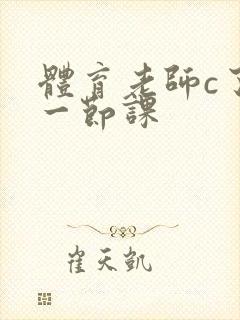 體育老師c了
一節課
崔天凱